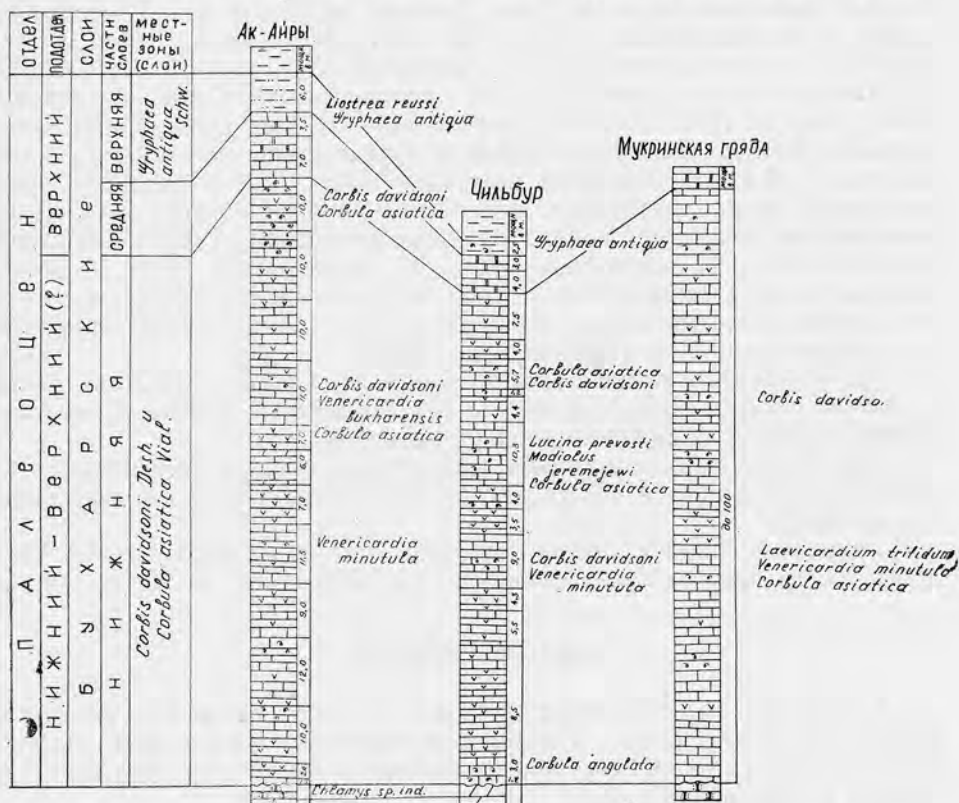 ОТДЕЛ
ПОДОТДЕЛ
СЛОИ
ЧАСТИ СЛОЕВ
МЕСТ-
НЫЕ
ЗОНЫ
(СЛОИ)
ПАЛЕОЦЕН
НИЖНИЙ-ВЕРХНИЙ(?)
ВЕРХНИЙ
БУХАРСКИЕ
НИЖНЯЯ
СРЕДНЯЯ
ВЕРХНЯЯ
Gryphaea
antiqua
Schw.
Corbis davidsoni Desh. и
Corbula asiatica Vial.
Ак-Айры
мощн. в м.
6,0
3,5
7,0
10,0
10,0
10,0
11,0
7,0
6,0
7,0
11,5
9,0
12,0
10,0
2,0
Liostrea reussi
Gryphaea antiqua
Corbis davidsoni
Corbula asiatica
Corbis davidsoni
Venericardia
Bukharensis
Corbula asiatica
Venericardia
minutula
Chlamys sp. ind.
Чильбур
мощн. в м.
2,5
3,0
4,0
7,5
4,0
5,7
4,4
10,3
4,0
3,5
9,0
4,5
5,5
8,5
3,0
Gryphaea antiqua
Corbula asiatica
Corbis davidsoni
Lucina prevosti
Modiolus
jeremejewi
Corbula asiatica
Corbis davidsoni
Venericardia
minutula
Corbula angulata
Мукринская гряда
мощн. в м.
до 100
Corbis davidso.
Laevicardium trifidum
Venericardia minutula
Corbula asiatica